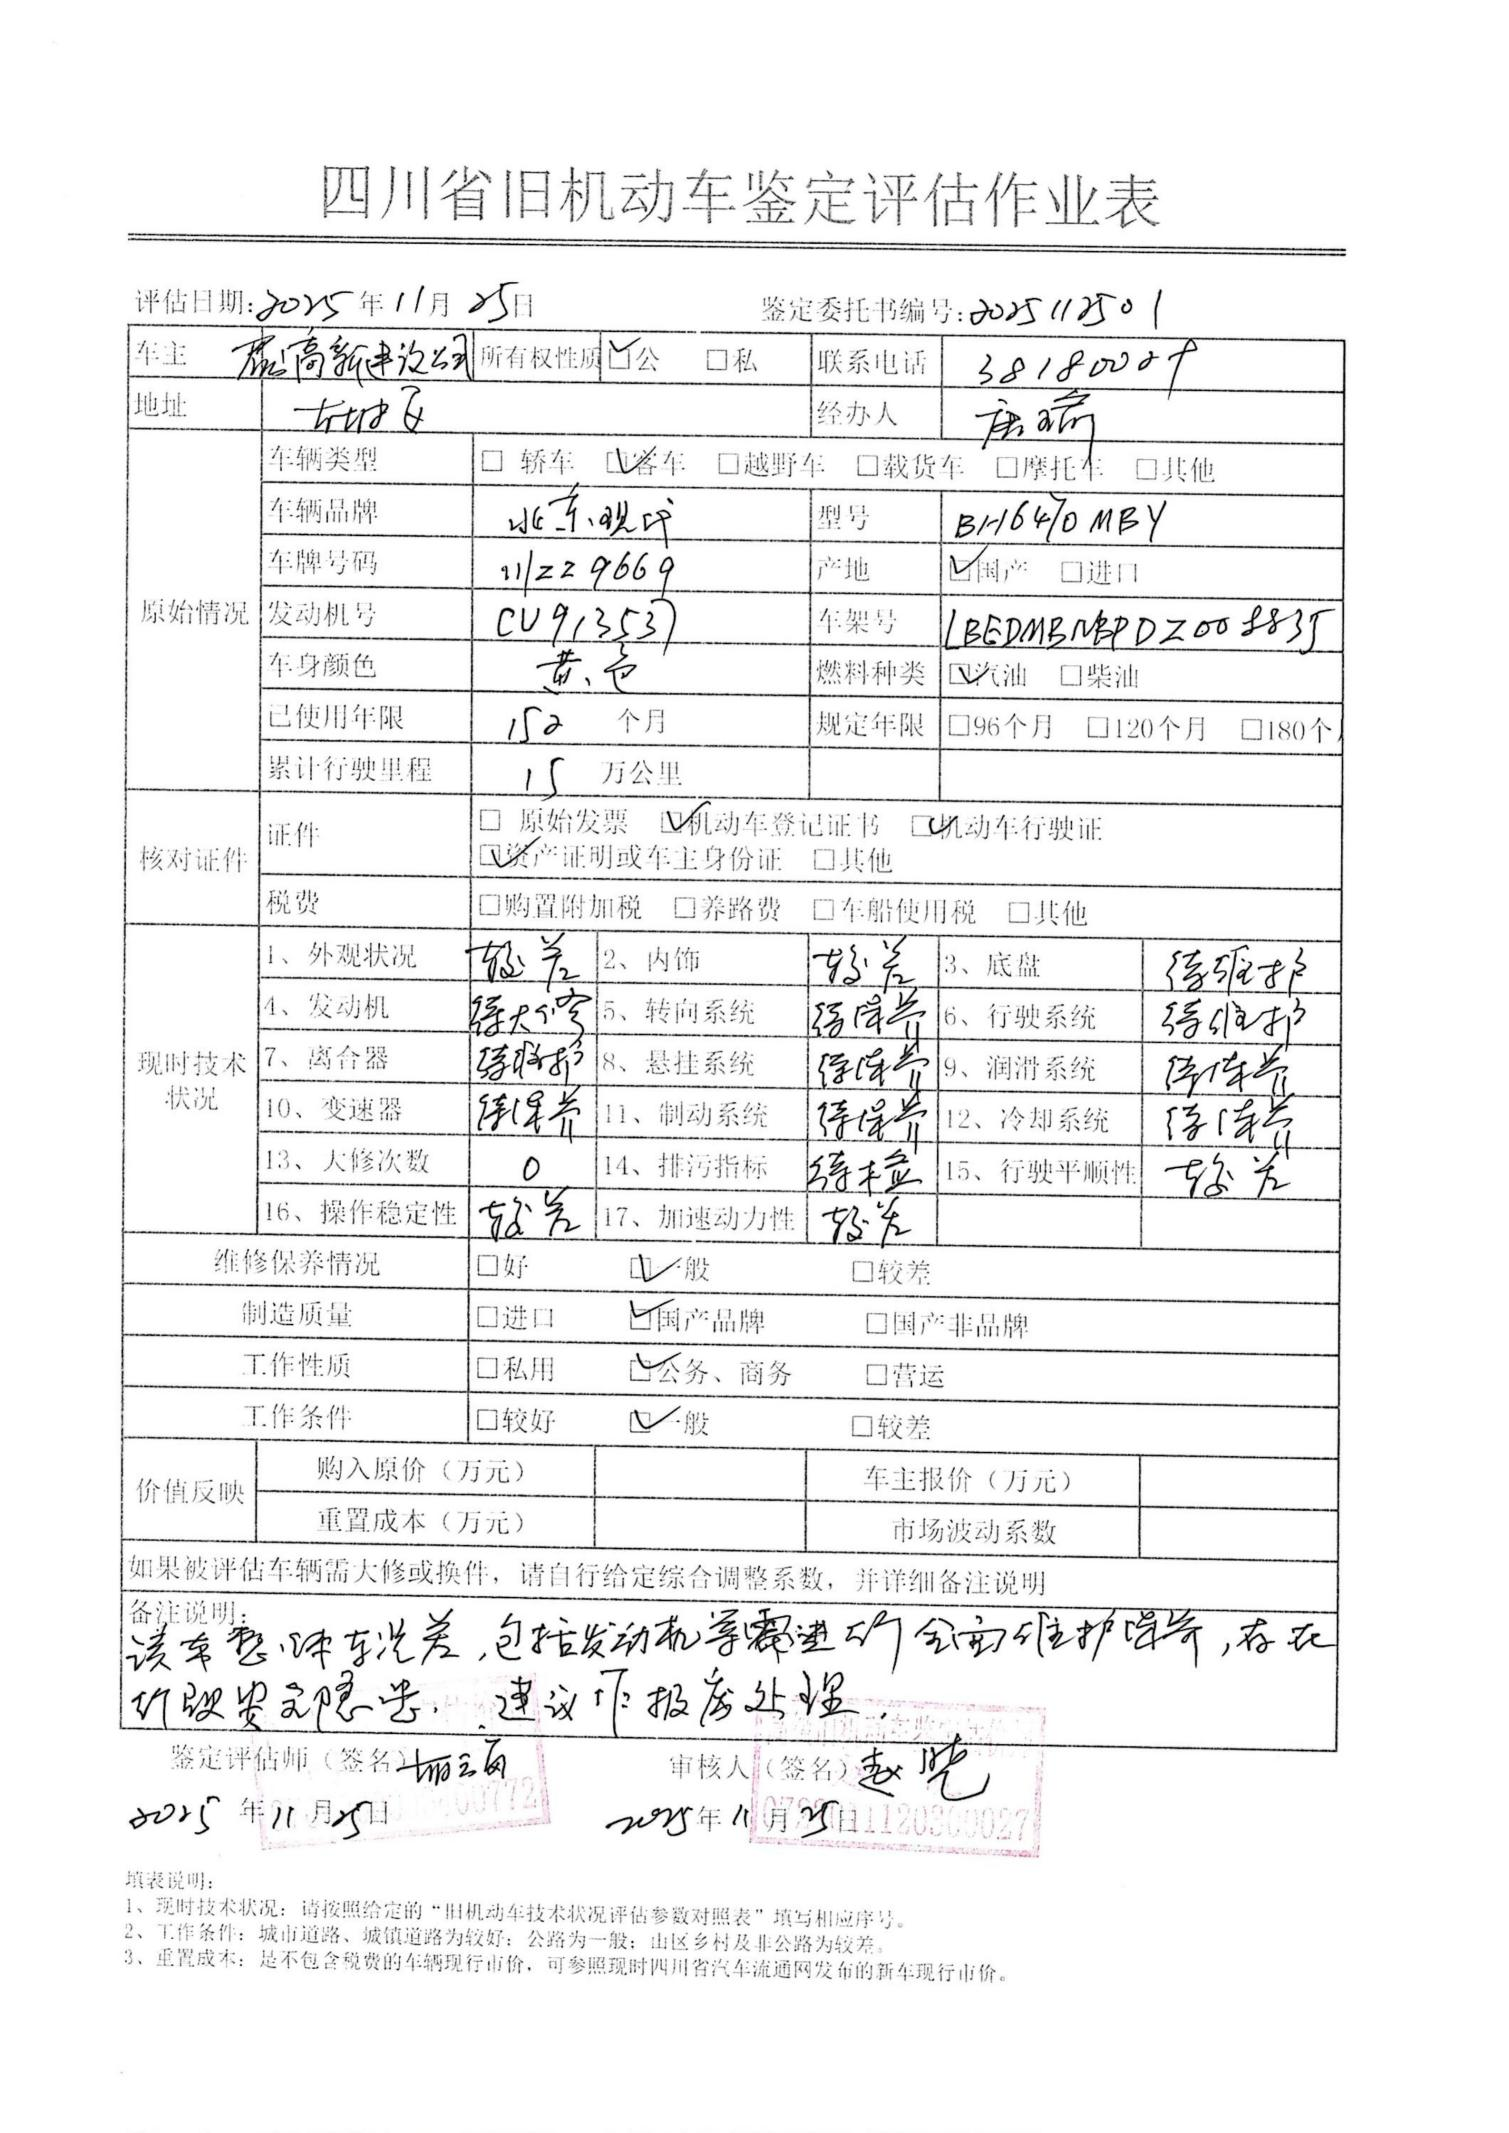 四川省旧机动车鉴定评估作业表
评估日期:2025年11月25日 鉴定委托书编号:2025112501
车主 高新建设公司 所有权性质 ☑公 □私 联系电话 38180029
地址 经办人 唐
原始情况
车辆类型 □ 轿车 ☑客车 □越野车 □载货车 □摩托车 □其他
车辆品牌 北京现代 型号 BH6470MBY
车牌号码 川Z29669 产地 ☑国产 □进口
发动机号 CU913537 车架号 LBEDMBNBPDZ008835
车身颜色 黄色 燃料种类 ☑汽油 □柴油
已使用年限 152 个月 规定年限 □96个月 □120个月 □180个
累计行驶里程 15 万公里
核对证件
证件 □ 原始发票 ☑机动车登记证书 ☑机动车行驶证
☑资产证明或车主身份证 □其他
税费 □购置附加税 □养路费 □车船使用税 □其他
现时技术状况
1、外观状况 较差 2、内饰 较差 3、底盘 待维护
4、发动机 待大修 5、转向系统 待保养 6、行驶系统 待维护
7、离合器 待维护 8、悬挂系统 待保养 9、润滑系统 待保养
10、变速器 待保养 11、制动系统 待保养 12、冷却系统 待保养
13、大修次数 0 14、排污指标 待检 15、行驶平顺性 较差
16、操作稳定性 较差 17、加速动力性 较差
维修保养情况 □好 ☑一般 □较差
制造质量 □进口 ☑国产品牌 □国产非品牌
工作性质 □私用 ☑公务、商务 □营运
工作条件 □较好 ☑一般 □较差
价值反映
购入原价（万元） 车主报价（万元）
重置成本（万元） 市场波动系数
如果被评估车辆需大修或换件，请自行给定综合调整系数，并详细备注说明
备注说明:
该车整体车况差,包括发动机等需进行全面维护保养,存在
行驶安全隐患.建议作报废处理.
鉴定评估师（签名） 审核人（签名）赵
2025年11月25日 2025年11月25日
填表说明:
1、现时技术状况：请按照给定的“旧机动车技术状况评估参数对照表”填写相应序号。
2、工作条件：城市道路、城镇道路为较好；公路为一般；山区乡村及非公路为较差。
3、重置成本：是不包含税费的车辆现行市价，可参照现时四川省汽车流通网发布的新车现行市价。